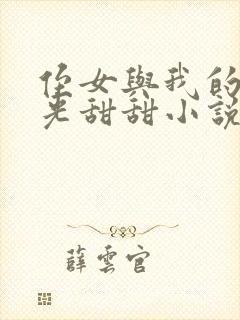 侄女與我的
光甜甜小說
薛雲官